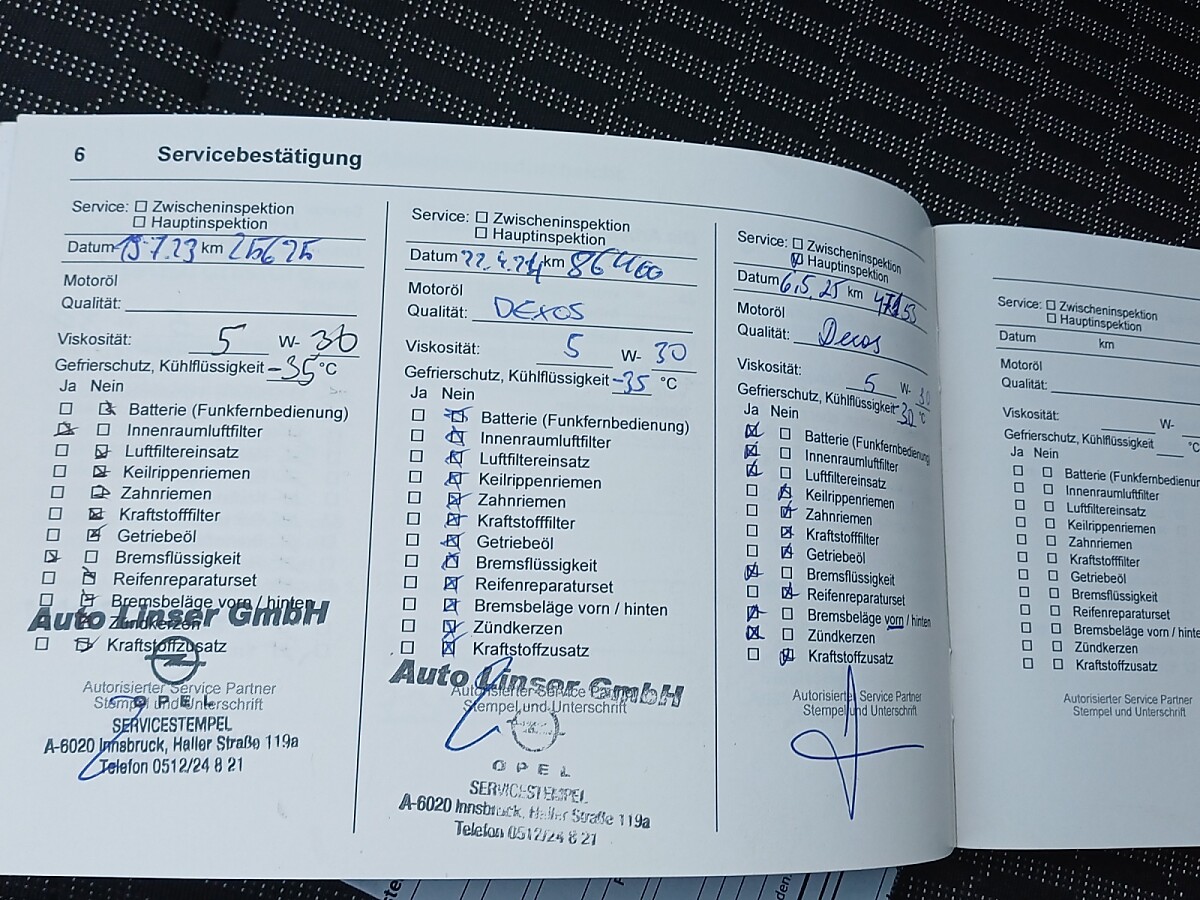 6 Servicebestätigung
Service: Zwischeninspektion
Hauptinspektion
Datum km 25625
Motoröl
Qualität:
Viskosität: 5 W- 30
Gefrierschutz, Kühlflüssigkeit -35 °C
Ja Nein
Batterie (Funkfernbedienung)
Innenraumluftfilter
Luftfiltereinsatz
Keilrippenriemen
Zahnriemen
Kraftstofffilter
Getriebeöl
Bremsflüssigkeit
Reifenreparaturset
Bremsbeläge vorn / hinten
Auto Linser GmbH
Zündkerzen
Kraftstoffzusatz
Autorisierter Service Partner
OPEL
Stempel und Unterschrift
SERVICESTEMPEL
A-6020 Innsbruck, Haller Straße 119a
Telefon 0512/24 8 21
Service: Zwischeninspektion
Hauptinspektion
Datum 22.4.24 km
Motoröl
Qualität: DEXOS
Viskosität: 5 W- 30
Gefrierschutz, Kühlflüssigkeit -35 °C
Ja Nein
Batterie (Funkfernbedienung)
Innenraumluftfilter
Luftfiltereinsatz
Keilrippenriemen
Zahnriemen
Kraftstofffilter
Getriebeöl
Bremsflüssigkeit
Reifenreparaturset
Bremsbeläge vorn / hinten
Zündkerzen
Kraftstoffzusatz
Auto Linser GmbH
Autorisierter Service Partner
Stempel und Unterschrift
OPEL
SERVICESTEMPEL
A-6020 Innsbruck, Haller Straße 119a
Telefon 0512/24 8 21
Service: Zwischeninspektion
Hauptinspektion
Datum 6.5.25 km
Motoröl
Qualität: Dexos
Viskosität: 5 W- 30
Gefrierschutz, Kühlflüssigkeit -30 °C
Ja Nein
Batterie (Funkfernbedienung)
Innenraumluftfilter
Luftfiltereinsatz
Keilrippenriemen
Zahnriemen
Kraftstofffilter
Getriebeöl
Bremsflüssigkeit
Reifenreparaturset
Bremsbeläge vorn / hinten
Zündkerzen
Kraftstoffzusatz
Autorisierter Service Partner
Stempel und Unterschrift
Service: Zwischeninspektion
Hauptinspektion
Datum km
Motoröl
Qualität:
Viskosität: W-
Gefrierschutz, Kühlflüssigkeit °C
Ja Nein
Batterie (Funkfernbedienun
Innenraumluftfilter
Luftfiltereinsatz
Keilrippenriemen
Zahnriemen
Kraftstofffilter
Getriebeöl
Bremsflüssigkeit
Reifenreparaturset
Bremsbeläge vorn / hinte
Zündkerzen
Kraftstoffzusatz
Autorisierter Service Partner
Stempel und Unterschrift